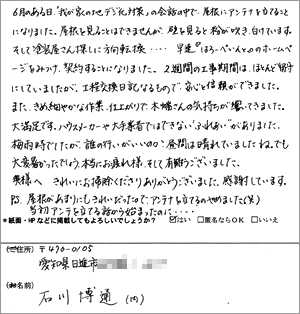 6月のある日、「我が家の地デジ化対策」の会話の中で、屋根にアンテナを立てることに
なりました。屋根を見ることはできませんが、壁を見ると粉が吹き、白けています。
そこで塗装屋さん探しに方向転換・・・・ 早速「はる・ぺいんと」のホームペー
ジをみつけ、契約することになりました。2週間の工事期間は、ほとんど留守
にしていましたが、工程交換日記なるもので、安心と信頼ができました。
また、きめ細やかな作業、仕上がりで、本当に さんの気持ちが響いてきました。
大満足です。ハウスメーカーや大手業者ではできない"ふれあい"がありました。
梅雨時でしたが、誰の行いがいいのか?昼間は晴れていましたね。でも
大変暑かったでしょう。本当にお疲れ様、そして有難うございました。
奥様へ きれいにお掃除くださりありがとうございました。感謝しています。
P.S. 屋根があまりにもきれいだったので、アンテナを立てるのやめました(笑)
当初アンテナを立てる話から始まったのに・・・・
*紙面・HPなどに掲載してもよろしいでしょうか? ☑はい □匿名ならOK □いいえ
(ご住所) 〒470-0105
愛知県日進市
(お名前)
石川 博通 (内)